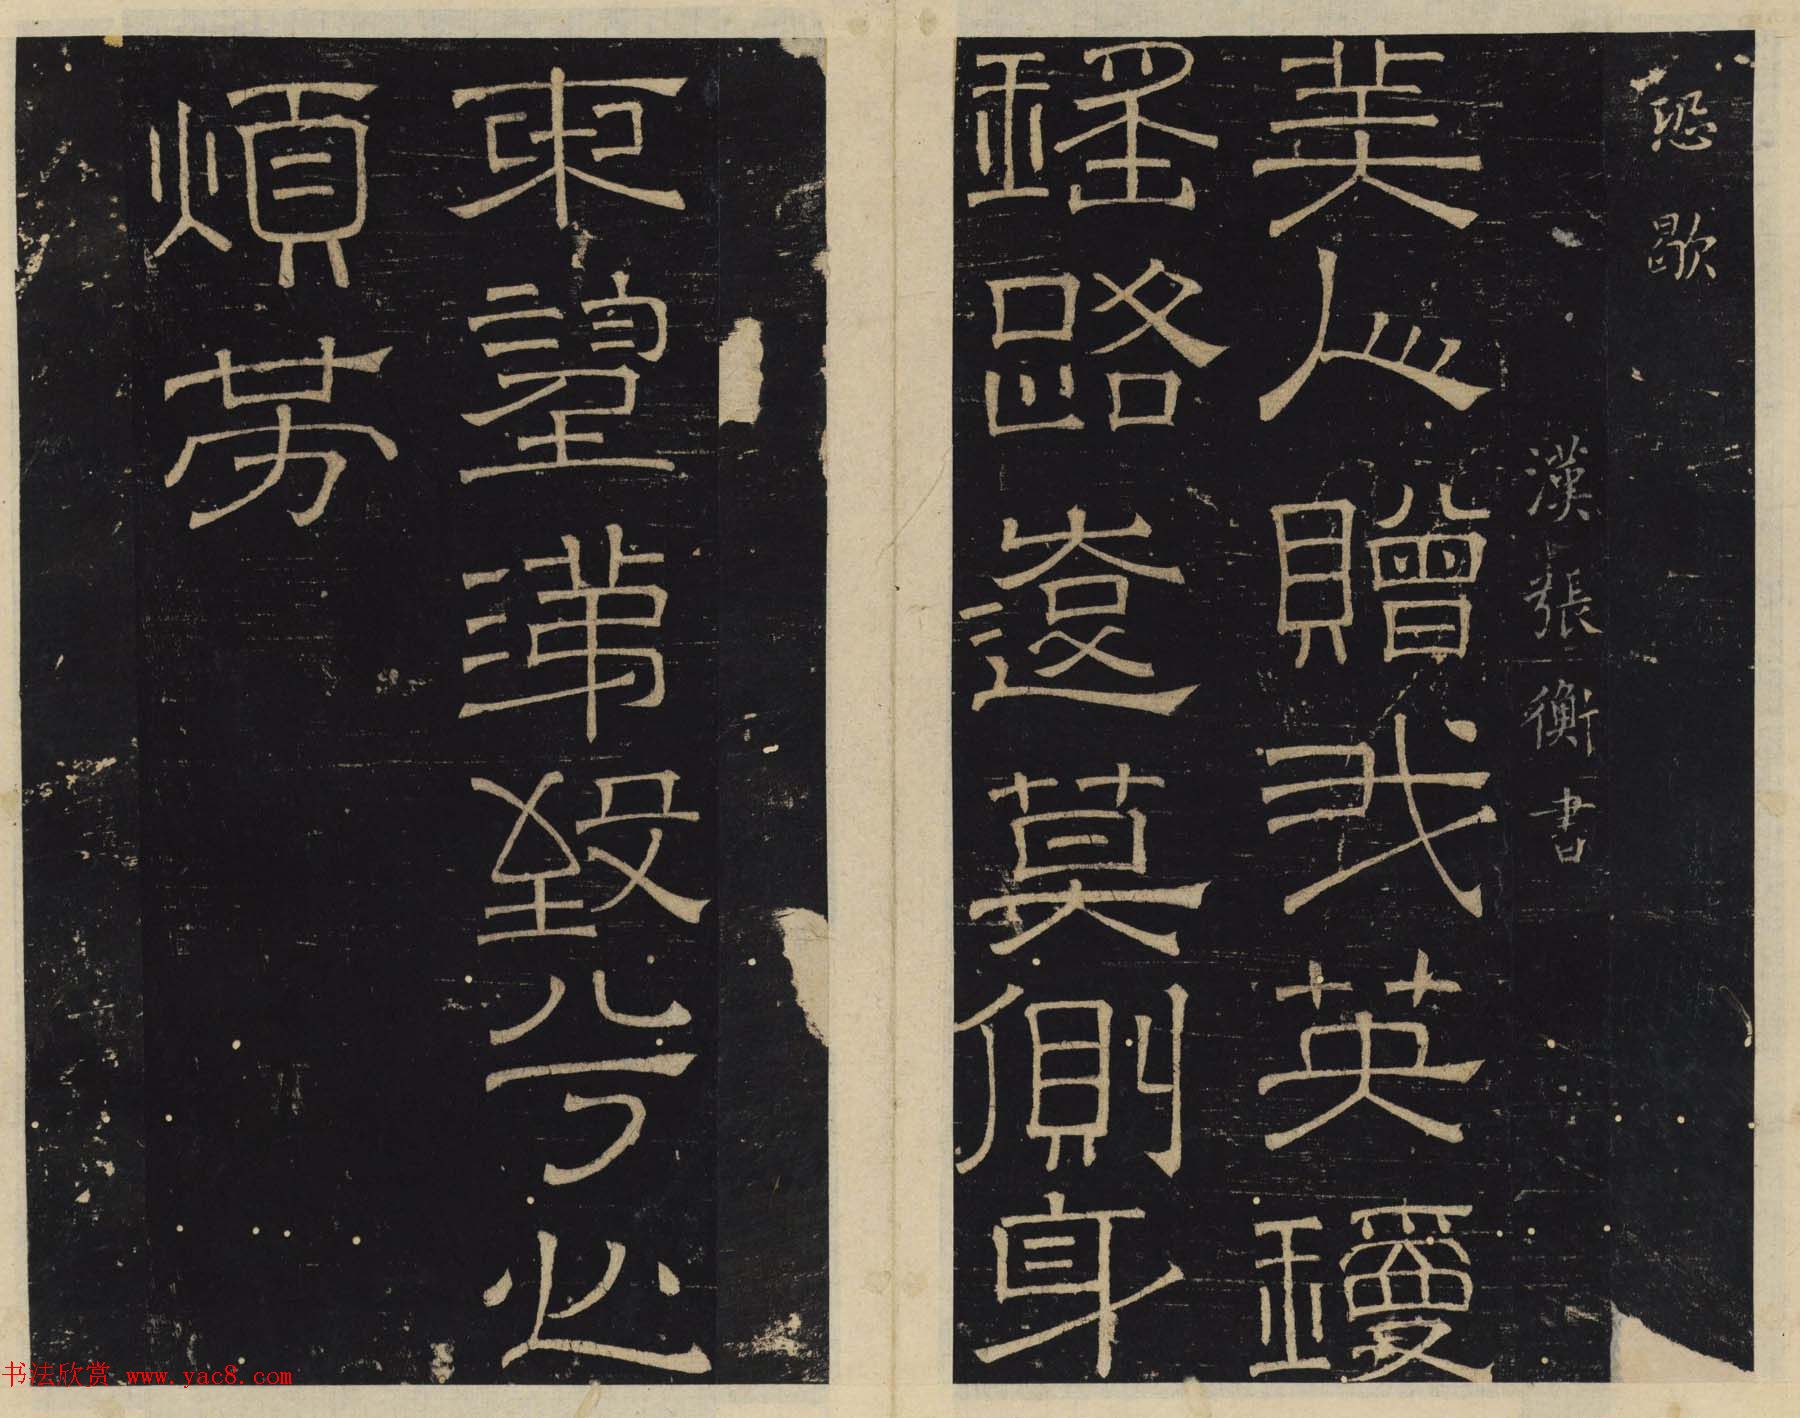 恐歇
漢張衡書
美人贈我英瓊
瑤路遠莫側身
東望涕致兮心
煩勞
书法欣赏 www.yac8.com